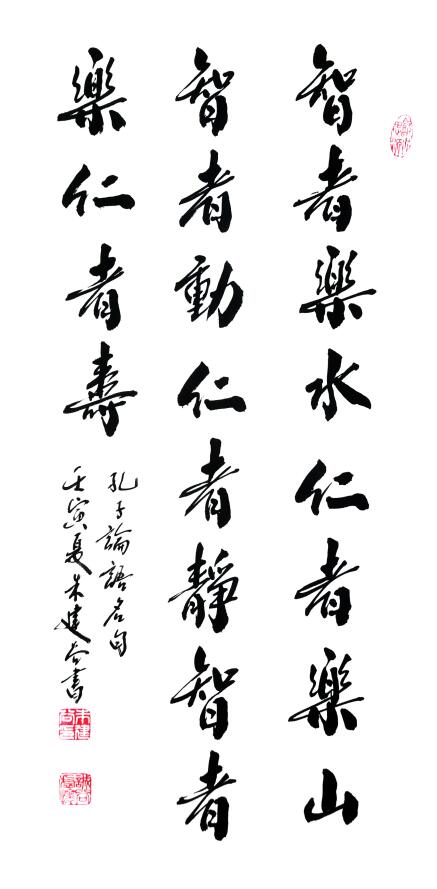 智者樂水仁者樂山
智者動仁者靜智者
樂仁者壽
孔子論語名句
壬寅夏朱建書